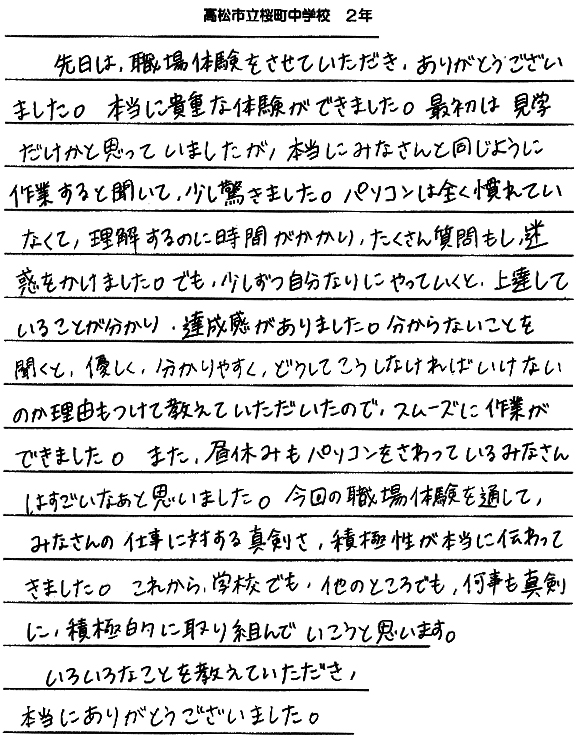 高松市立桜町中学校　2年
先日は、職場体験をさせていただき、ありがとうござい
ました。本当に貴重な体験ができました。最初は見学
だけかと思っていましたが、本当にみなさんと同じように
作業すると聞いて、少し驚きました。パソコンは全く慣れてい
なくて、理解するのに時間がかかり、たくさん質問もし、迷
惑をかけました。でも、少しずつ自分なりにやっていくと、上達して
いることが分かり、達成感がありました。分からないことを
聞くと、優しく、分かりやすく、どうしてこうしなければいけない
のか理由もつけて教えていただいたので、スムーズに作業が
できました。また、昼休みもパソコンをさわっているみなさん
はすごいなあと思いました。今回の職場体験を通して、
みなさんの仕事に対する真剣さ、積極性が本当に伝わって
きました。これから、学校でも、他のところでも、何事も真剣
に、積極的に取り組んでいこうと思います。
いろいろなことを教えていただき、
本当にありがとうございました。